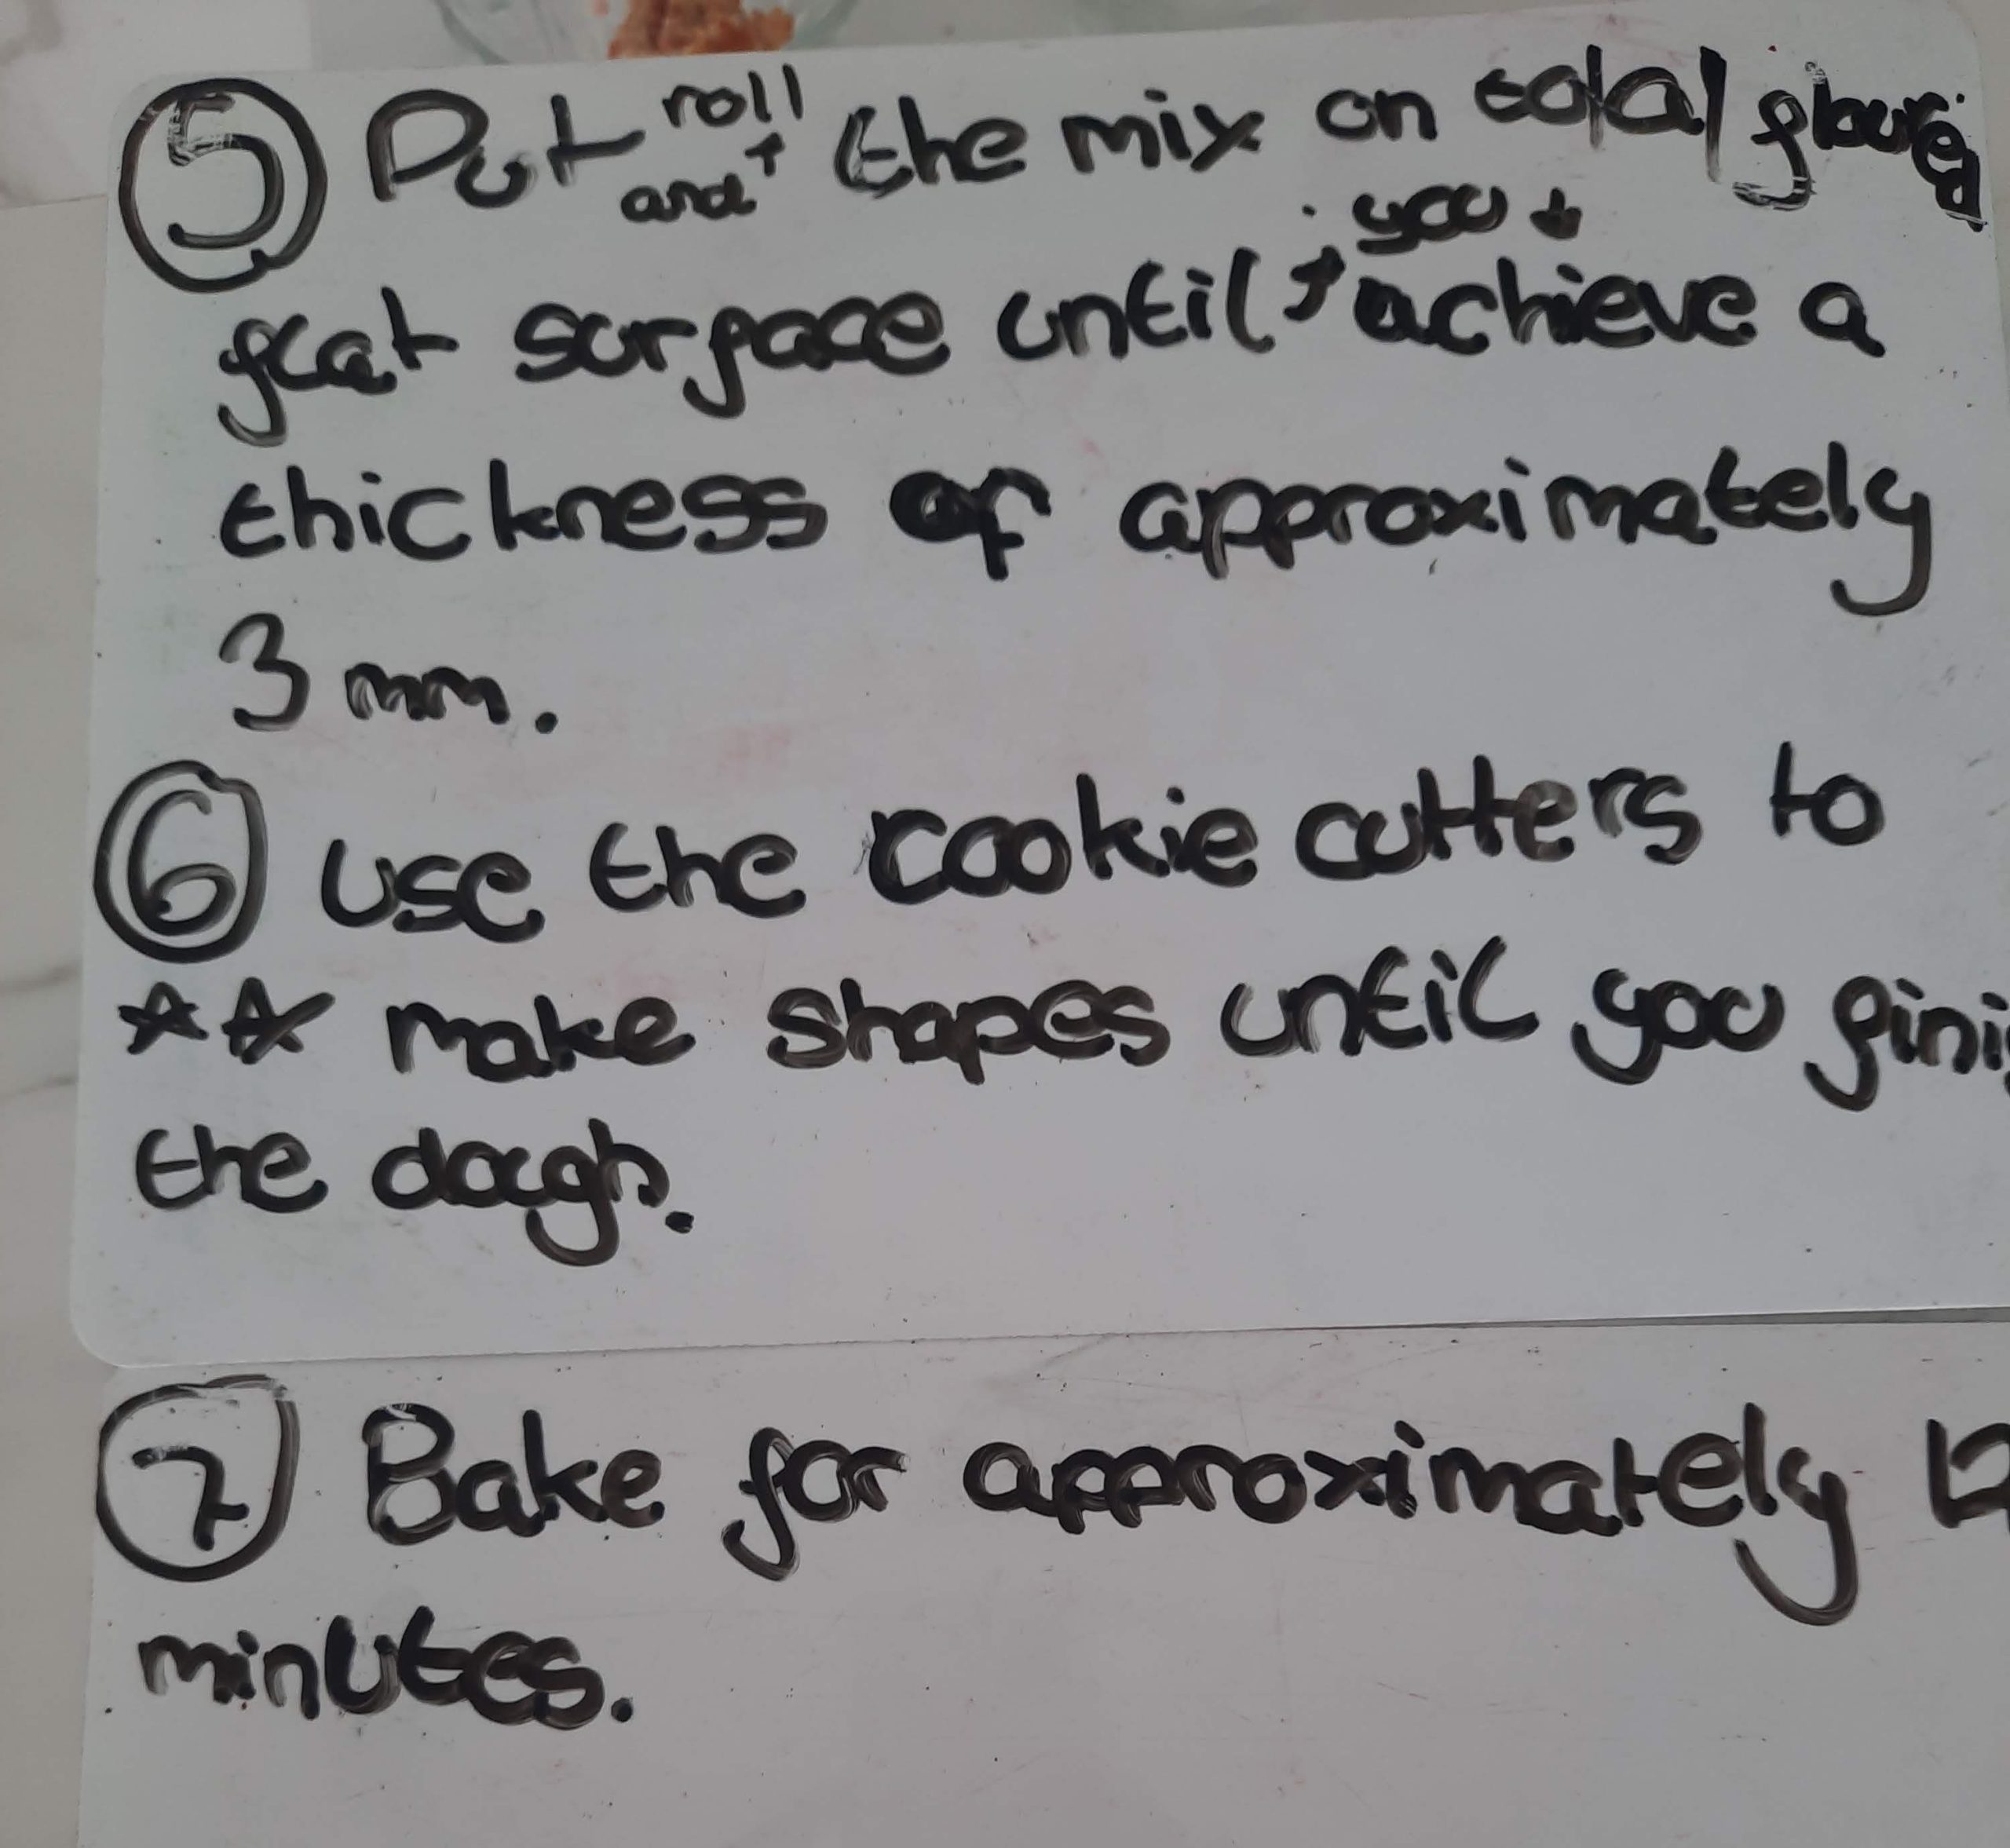 5 Put and roll the mix on total floured
flat surface until you achieve a
thickness of approximately
3 mm.
6 Use the cookie cutters to
make shapes until you fini
the dough.
7 Bake for approximately 12
minutes.